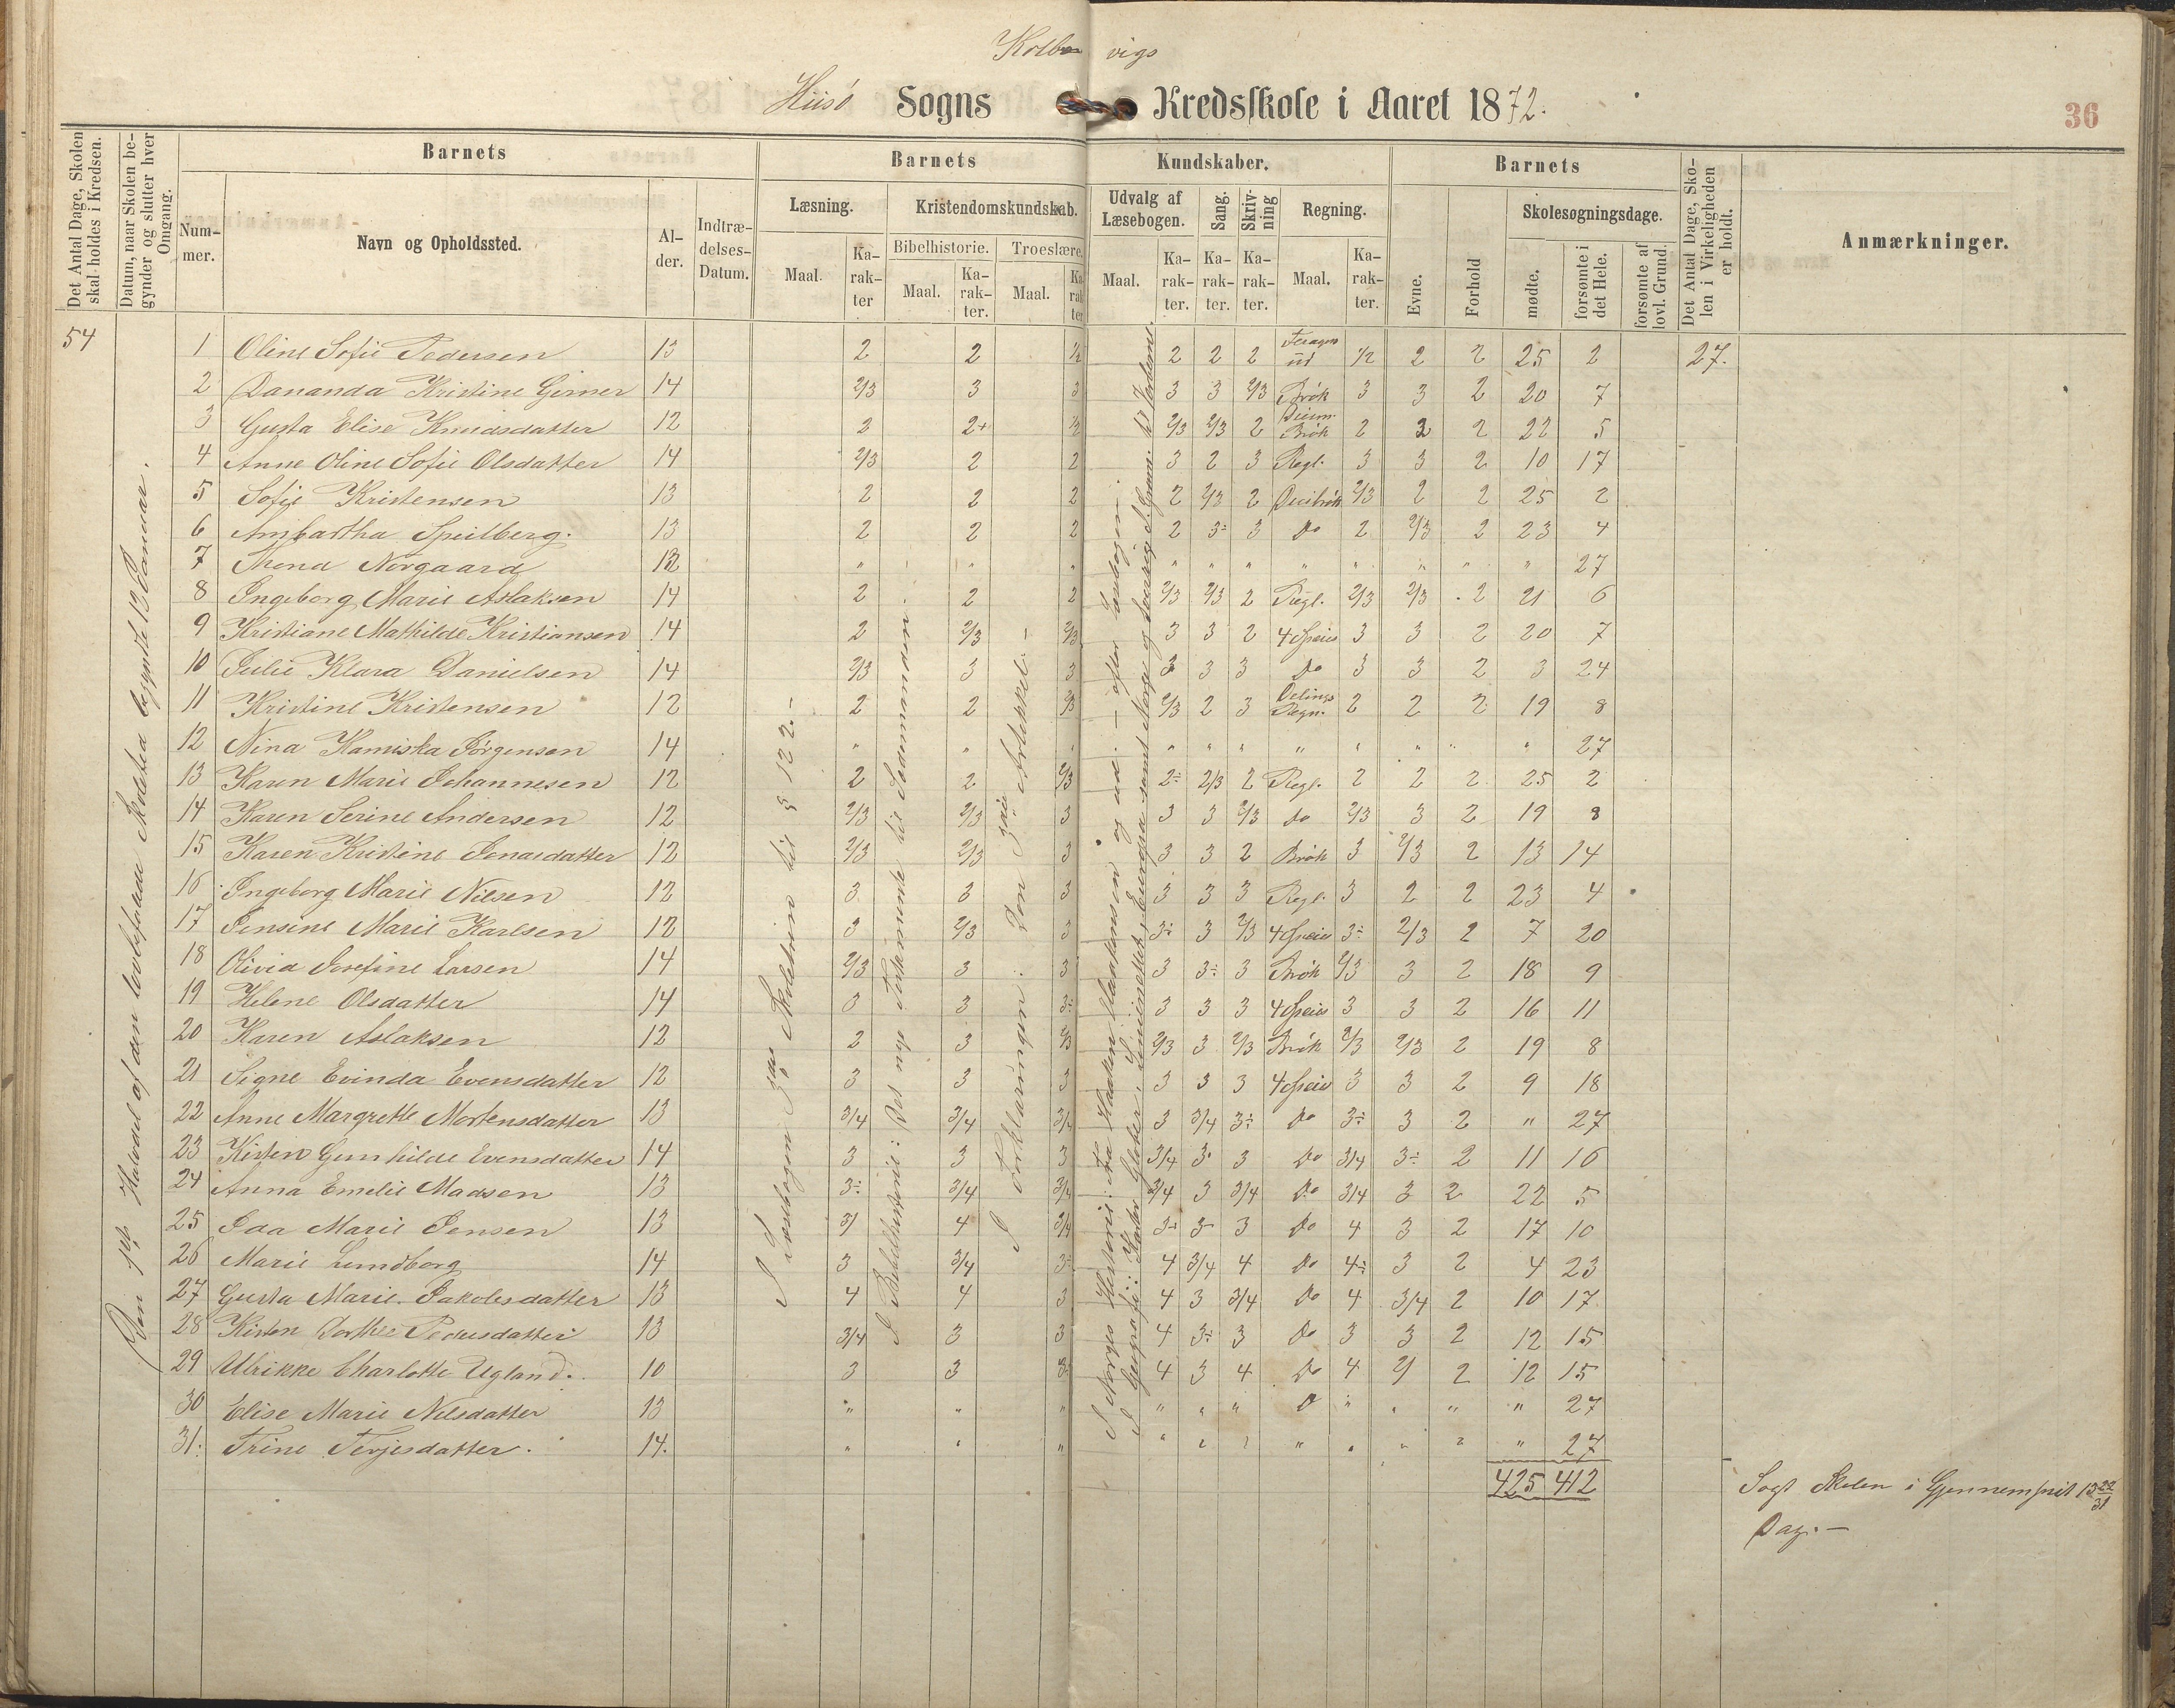 Kolbvigs
Hiisø Sogns Kredsskole i Aaret 1872.
36
Det Antal Dage, Skolen skal holdes i Kredsen.
Datum, naar Skolen begynder og slutter hver Omgang.
Barnets
Num-mer.
Navn og Opholdssted.
Al-der.
Indtræ-delses-Datum.
Barnets Kundskaber.
Læsning.
Maal.
Ka-rak-ter
Kristendomskundskab.
Bibelhistorie.
Maal.
Ka-rak-ter.
Troeslære.
Maal.
Ka-rak-ter
Udvalg af Læsebogen.
Maal.
Ka-rak-ter.
Sang.
Ka-rak-ter.
Skriv-ning
Ka-rak-ter.
Regning.
Maal.
Ka-rak-ter.
Barnets
Evne.
Forhold
Skolesøgningsdage.
mødte.
forsømte i det Hele.
forsømte af lovl. Grund.
Det Antal Dage, Sko-len i Virkeligheden er holdt.
Anmærkninger.
54
Den 1ste Halvdel af den lovbefalede Skoletid begyndte 12 Januar.
I Læsebogen 3die Skoletrin til § 122.-
I Bibelhistorie: Det nye Testamente til Sædemanden.
I Forklaringen: Den 3die Artikkel.-
I Norges Historie: fra Haakon Haakonsen og ud - efter Læsebogen.
1 Oline Sofie Pedersen 13 2 2 1/2 2 2 2 ud 1/2 2 2 25 2 27.
2 Dananda Kristine Girner 14 2/3 3 3 3 3 2/3 Brøk 3 3 2 20 7
3 Gusta Elise Knudsdatter 12 2 2+ 1/2 2/3 2/3 2 Brøk 2 2 2 22 5
4 Anne Oline Sofie Olsdatter 14 2/3 2 2 3 2 3 Regl. 3 3 2 10 17
5 Sofie Kristensen 13 2 2 2 2 2/3 2 Decibrøk 2/3 2 2 25 2
6 Ambartha Speilberg. 13 2 2 2 2 3÷ 3 Do 2 2/3 2 23 4
7 Thena Norgaard 12 " " " " " " " " " " " 27
8 Ingeborg Marie Aslaksen 14 2 2 2 2/3 2/3 2 Regl. 2/3 2/3 2 21 6
9 Kristiane Mathilde Kristiansen 14 2 2/3 2/3 3 3 2 4 Speies 3 3 2 20 7
10 Julie Klara Danielsen 14 2/3 3 3 3 3 3 Do 3 3 2 3 24
11 Kristine Kristensen 12 2 2 2/3 2/3 2 3 Delings Regn. 2 2 2 19 8
12 Nina Kamiska Jørgensen 14 " " " " " " " " " " " 27
13 Karen Marie Johannesen 12 2 2 2/3 2÷ 2/3 2 Regl. 2 2 2 25 2
14 Karen Serine Andersen 12 2/3 2/3 3 3 3 2/3 Do 2/3 3 2 19 8
15 Karen Kristine Jonasdatter 12 2/3 2/3 3 3 3 2 Brøk 3 2/3 2 13 14
16 Ingeborg Marie Nilsen 12 3 3 3 3 3 3 Regl. 3 2 2 23 4
17 Jensine Marie Karlsen 12 3 2/3 3 3÷ 3 2/3 4 Speies 3÷ 2/3 2 7 20
18 Olivia Josefine Larsen 14 2/3 3 3 3 3÷ 3 Brøk 2/3 3 2 18 9
19 Helene Olsdatter 14 3 3 3÷ 3 3 3 4 Speies 3 3 2 16 11
20 Karen Aslaksen 12 2 3 2/3 2/3 3 2/3 Brøk 2/3 2/3 2 19 8
21 Signe Evinda Evensdatter 12 3 3 3 3 3 3 4 Speies 3 3 2 9 18
22 Anne Margrethe Mortensdatter 13 3/4 3/4 3/4 3 3/4 3÷ Do 3÷ 3 2 " 27
23 Kisten Gunhilde Evensdatter 14 3 3 3 3/4 3 3 Do 3/4 3÷ 2 11 16
24 Anna Emelie Madsen 13 3÷ 3/4 3/4 3/4 3 3/4 Do 3/4 3 2 22 5
25 Ida Marie Jensen 13 3/ 4 3/4 3÷ 3 3 Do 4 3 2 17 10
26 Marie Lundborg 14 3 3/4 3÷ 4 3/4 4 Do 4÷ 3 2 4 23
27 Gusta Marie Jakobsdatter 13 4 4 3 4 3 3/4 Do 4 3/4 2 10 17
28 Kisten Dorthe Pedersdatter 13 3/4 3 3 4 3÷ 3 Do 3 3 2 12 15
29 Ulrikke Charlotte Ugland. 10 3 3 3 4 3 4 Do 4 2 12 15
30 Elise Marie Nilsdatter 13 " " " " " " " " " " 27
31. Trine Terjesdatter. 14. " " " " " " " " " " " 27
425 412
Søgt Skolen i Gjennemsnit 13 22/31
Dag.-